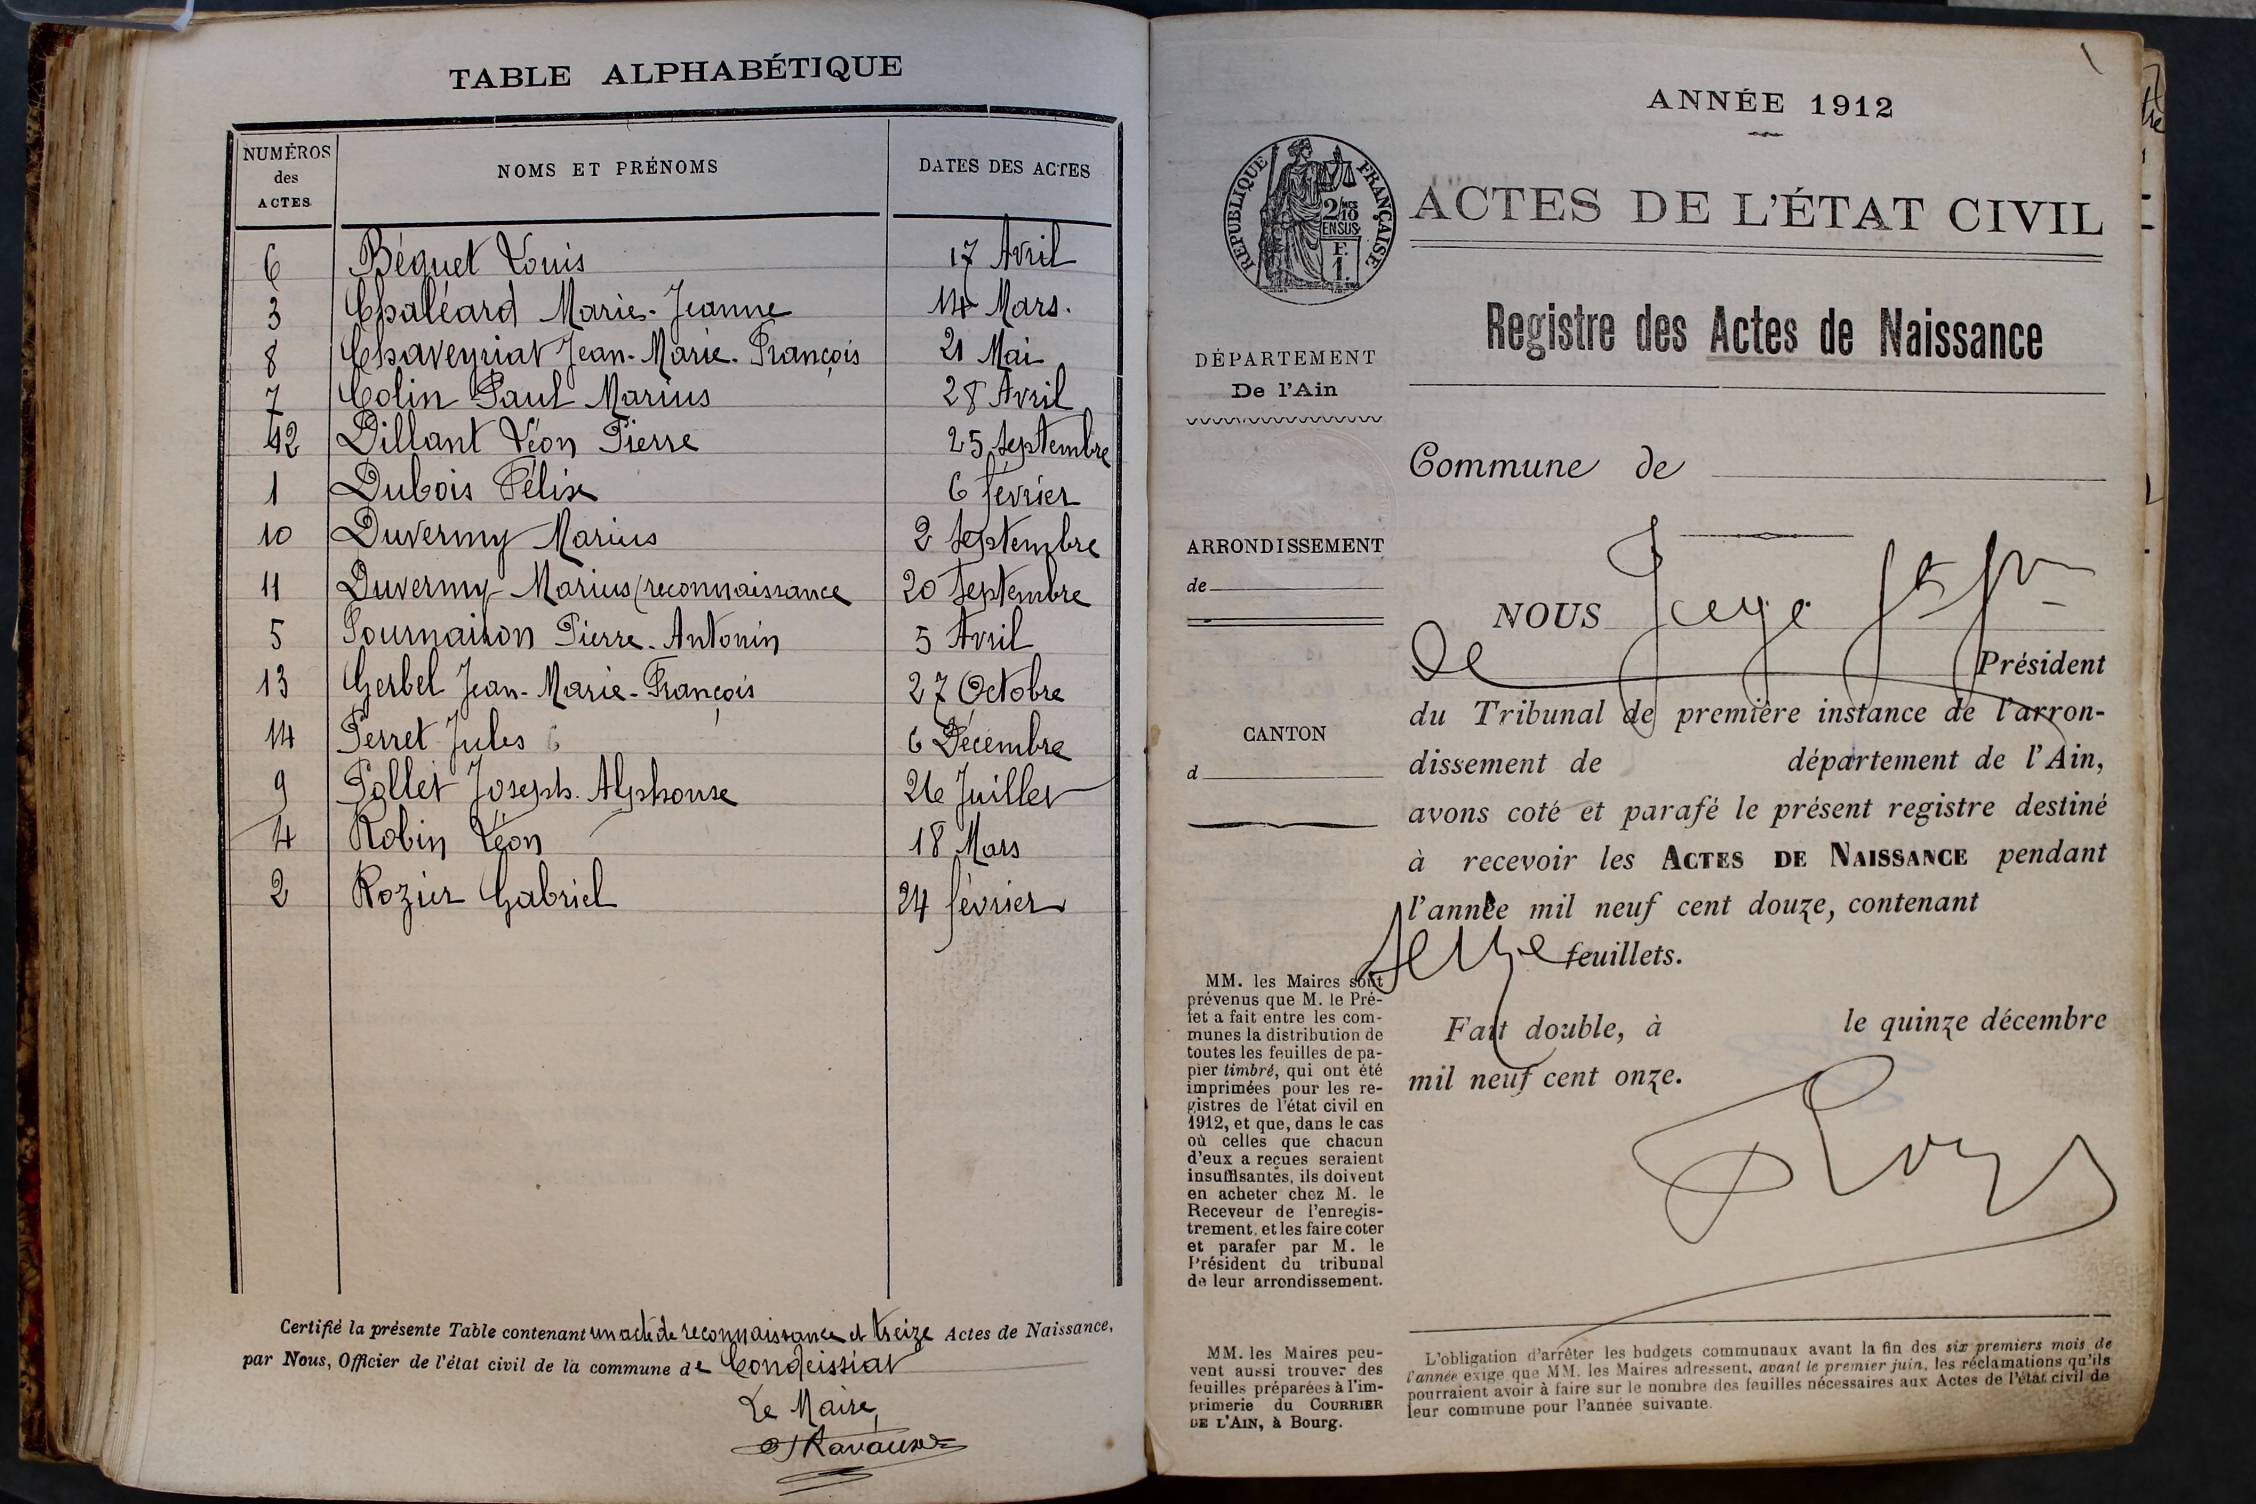 TABLE ALPHABÉTIQUE
NUMÉROS des ACTES NOMS ET PRÉNOMS DATES DES ACTES
6 Béguet Louis 17 Avril
3 Chaléard Marie-Jeanne 14 Mars.
8 Chaveyriat Jean-Marie-François 21 Mai
7 Colin Paul Marius 28 Avril
12 Dillant Léon Pierre 25 Septembre
1 Dubois Félix 6 février
10 Duvermy Marius 2 Septembre
11 Duvermy Marius (reconnaissance 20 Septembre
5 Fournaison Pierre-Antonin 5 Avril
13 Gerbel Jean-Marie-François 27 Octobre
14 Perret Jules 6 Décembre
9 Pollet Joseph-Alphonse 26 Juillet
4 Robin Léon 18 Mars
2 Rozier Gabriel 24 février
Certifié la présente Table contenant un acte de reconnaissance et treize Actes de Naissance,
par Nous, Officier de l'état civil de la commune de Condeissiat
Le Maire,
Ravaux
ANNÉE 1912
RÉPUBLIQUE FRANÇAISE
2/10 EN SUS
F.
1.
ACTES DE L'ÉTAT CIVIL
Registre des Actes de Naissance
DÉPARTEMENT
De l'Ain
Commune de
ARRONDISSEMENT
de
CANTON
d
NOUS Juge
De Président
du Tribunal de première instance de l'arron-
dissement de département de l'Ain,
avons coté et parafé le présent registre destiné
à recevoir les ACTES DE NAISSANCE pendant
l'année mil neuf cent douze, contenant
seize feuillets.
Fait double, à le quinze décembre
mil neuf cent onze.
MM. les Maires sont
prévenus que M. le Pré-
fet a fait entre les com-
munes la distribution de
toutes les feuilles de pa-
pier timbré, qui ont été
imprimées pour les re-
gistres de l'état civil en
1912, et que, dans le cas
où celles que chacun
d'eux a reçues seraient
insuffisantes, ils doivent
en acheter chez M. le
Receveur de l'enregis-
trement, et les faire coter
et parafer par M. le
Président du tribunal
de leur arrondissement.
MM. les Maires peu-
vent aussi trouver des
feuilles préparées à l'im-
primerie du COURRIER
DE L'AIN, à Bourg.
L'obligation d'arrêter les budgets communaux avant la fin des six premiers mois de
l'année exige que MM. les Maires adressent, avant le premier juin, les réclamations qu'ils
pourraient avoir à faire sur le nombre des feuilles nécessaires aux Actes de l'état civil de
leur commune pour l'année suivante.